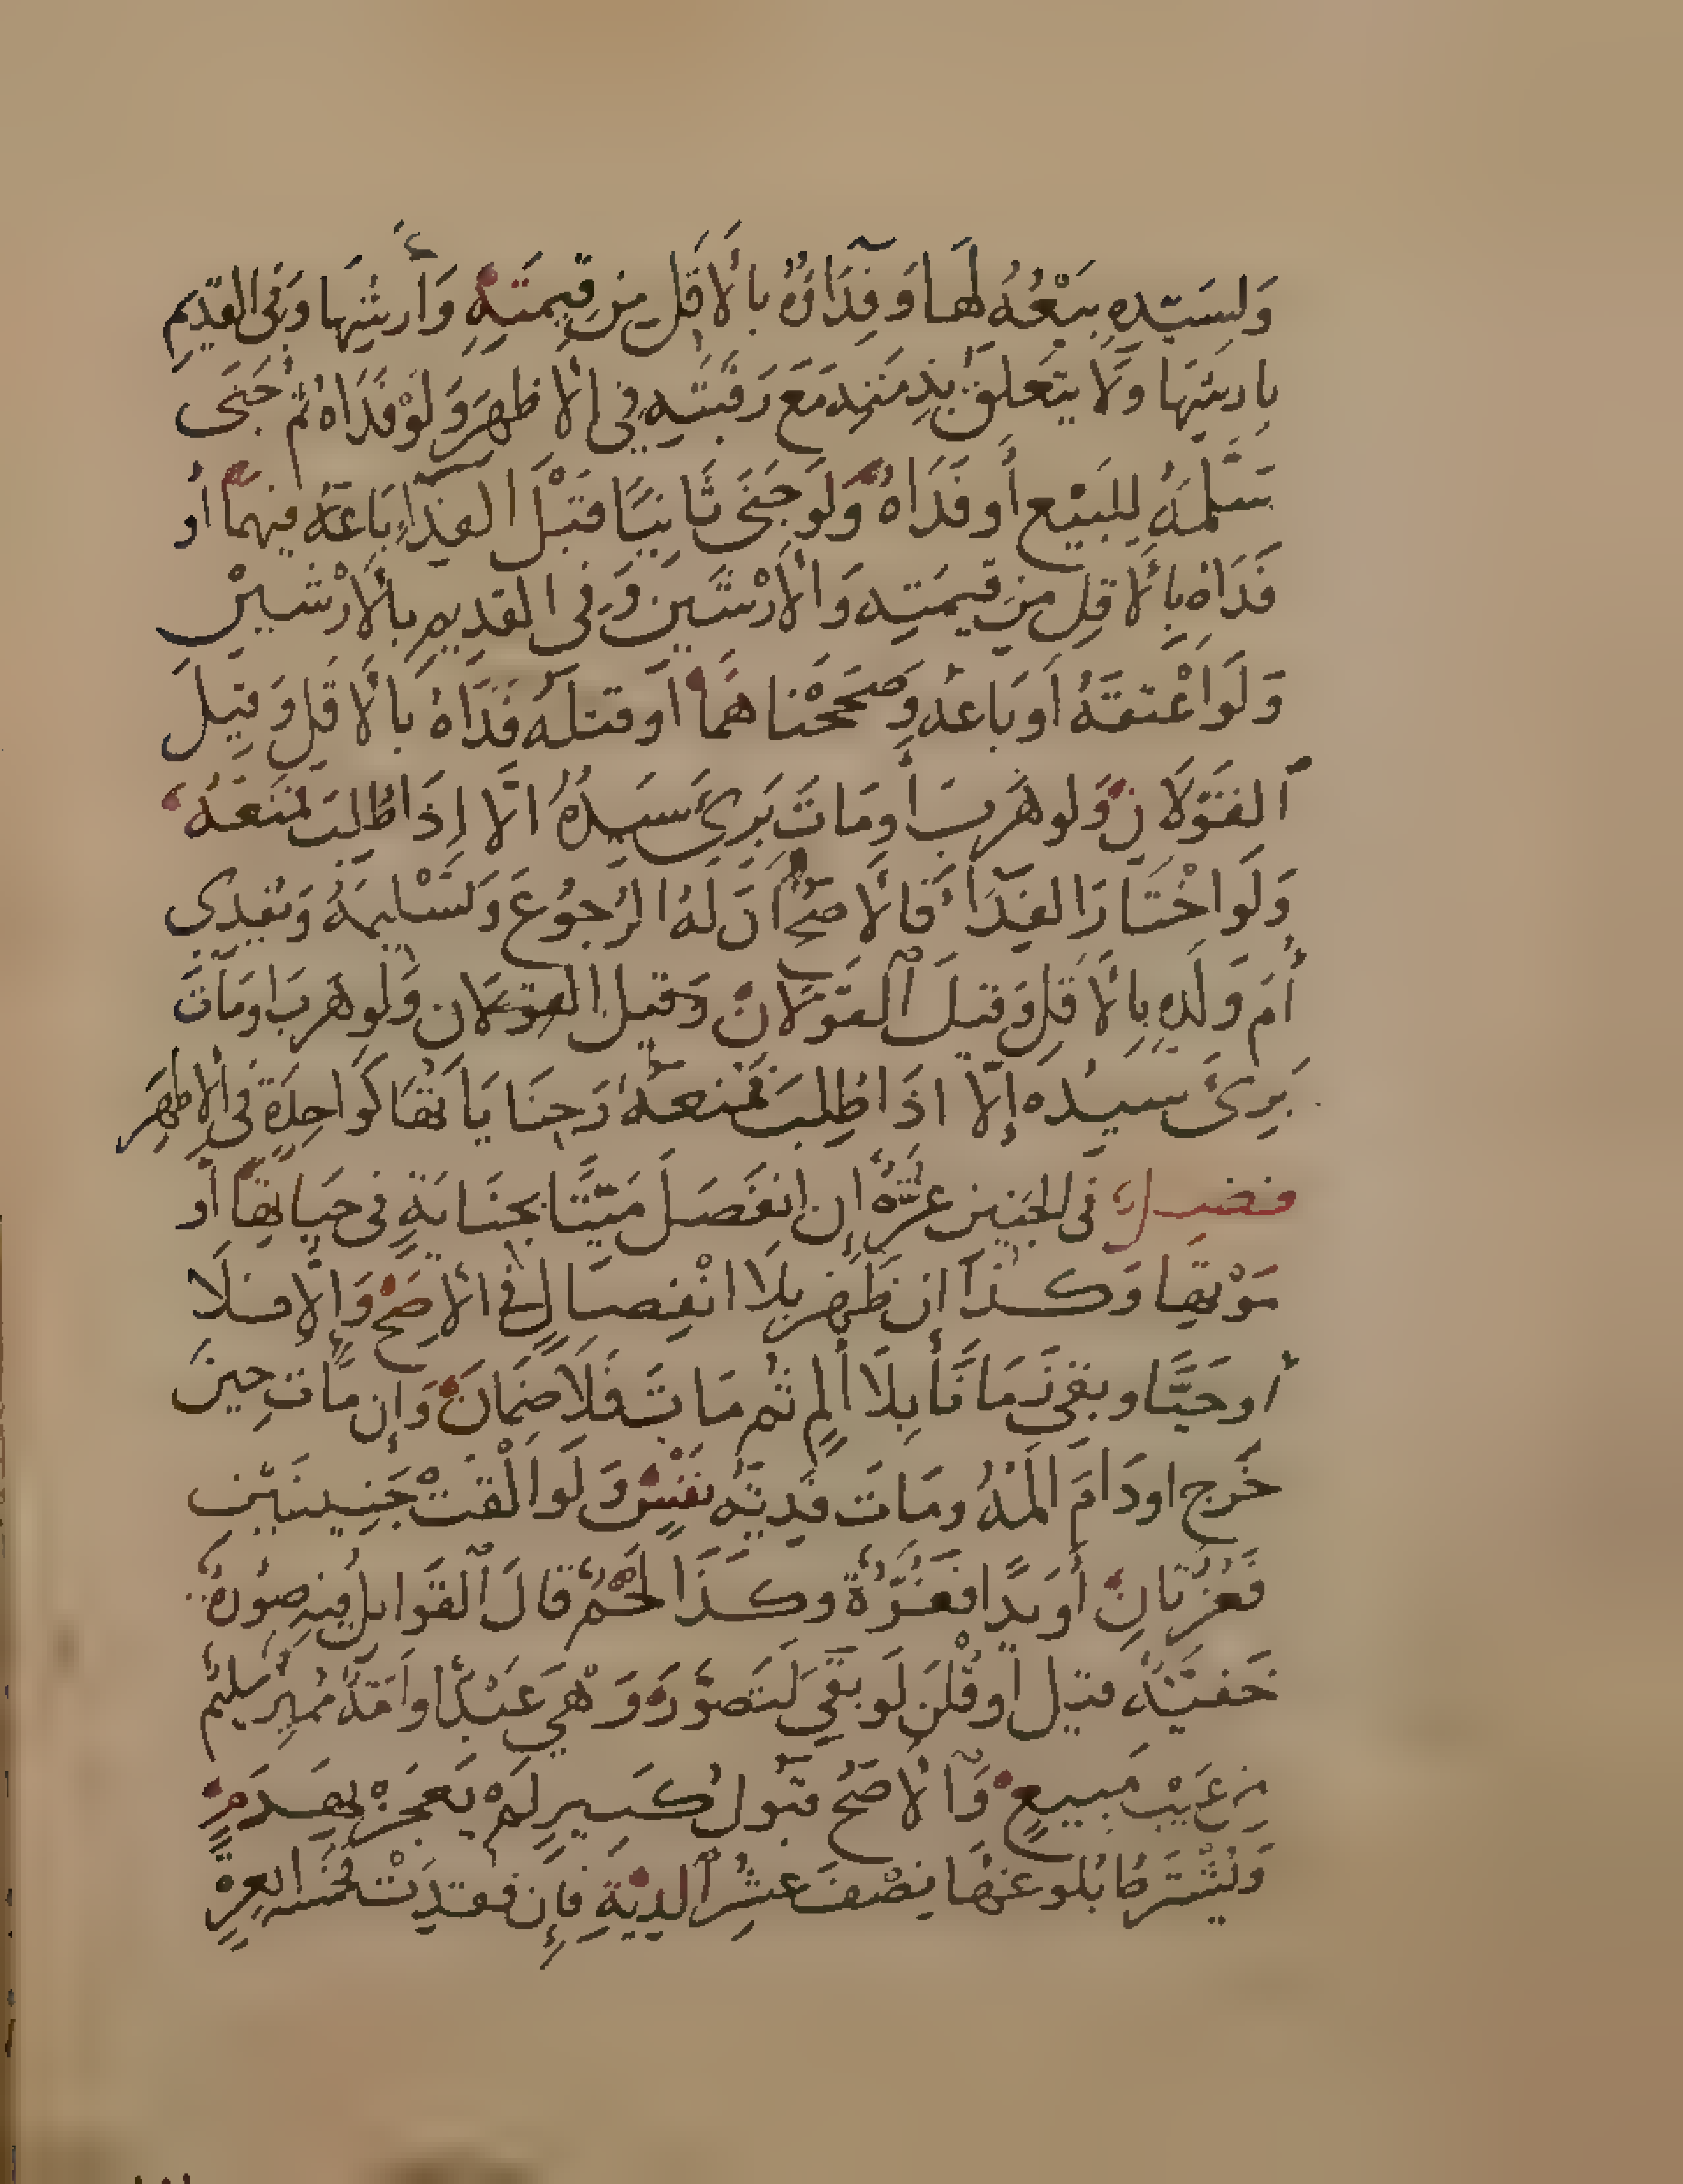 وَلِسَيِّدِهِ بَيْعُهُ لَهَا وَفِدَاؤُهُ بِالْأَقَلِّ مِنْ قِيمَتِهِ وَأَرْشِهَا وَفِى القَدِيمِ
بِأَرْشِهَا وَلَا يَتَعَلَّقُ بِذِمَّتِهِ مَعَ رَقَبَتِهِ فِي الْأَظْهَرِ وَلَوْ فَدَاهُ ثُمَّ جَنَى
سَلَّمَهُ لِلبَيْعِ أَو فَدَاهُ وَلَو جَنَى ثَانِيًا قَبْلَ الفِدَآءِ بَاعَهُ فِيهِمَا أَو
فَدَاهُ بِالْأَقَلِّ مِنْ قِيمَتِهِ وَالْأَرْشَيْنِ وَفِى القَدِيمِ بِالْأَرْشَيْنِ
وَلَوَ اعْتَقَهُ أَو بَاعَهُ وَصَحَّحْنَا هُمَا أَو قتلَهُ فَدَاهُ بِالْأَقَلِّ وَقِيلَ
ٱلقَوْلَانِ وَلو هَرَبَ أَومَاتَ بَرِئَ سَيِّدُهُ الَّا إِذَا طُلِبَ فَمَنَعَهُ
وَلَو اخْتَارَ الفِدَآءَ فَالْأَصَحُّ أَنَّ لَهُ الرُّجُوعَ وَتَسْلِيمَهُ وَيَفْدِي
أُمَّ وَلَدِهِ بِالْأَقَلِّ وَقِيلَ ٱلقَوْلَانِ وَقيل القولَان وَلو هَرَبَ اومَاتَ
بَرِئَ سيدُه إلّا اذَا طُلِبَ فَمَنعهُ وَجِنَايَاتُهَا كَوَاحِدَةٍ فى الأظهَرِ
فصل فى الجَنِين غرَّةٌ إن انفَصَلَ مَيِّتًا بجنَايَةٍ فى حيَاتِهَا أَو
مَوْتِهَا وَكَذَا ان ظَهَرَ بِلَا انْفِصَالٍ فى الأَصَحِّ وَإِلَّا فَلَا
أَو حَيًّا وبقى زَمَانًا بِلَا أَلَمٍ ثُم مَاتَ فَلَا ضَمَانَ وَإِن مَات حِينَ
خَرج اودَامَ أَلَمُهُ ومَاتَ فَدِيَةُ نَفْسٍ وَلَو أَلْقَتْ جَنِينَيْنِ
فَغُرَّتَانِ أَو يَدًا فَغُرَّةٌ وكَذَا لَحْمٌ قَالَ ٱلقَوَابِلُ فِيهِ صُورَةٌ
خَفيَّةٌ قيل أَو قُلْنَ لَو بَقِيَ لَتَصَوَّرَ وَهْيَ عَبْدٌ أَو أَمَةٌ مُمَيِّزٌ سَلِيمٌ
مِن عَيْبِ مَبِيعٍ وَٱلْأَصَحُّ قَبُولُ كَبِيرٍ لَمْ يَعْجِزْ بِهَرَمٍ
وَيُشْتَرَطُ بُلُوغُهَا نِصْفَ عُشْرِ ٱلدِّيَةِ فَإِن فُقِدَتْ فَخَمْسَةُ أَبْعِرَةٍ